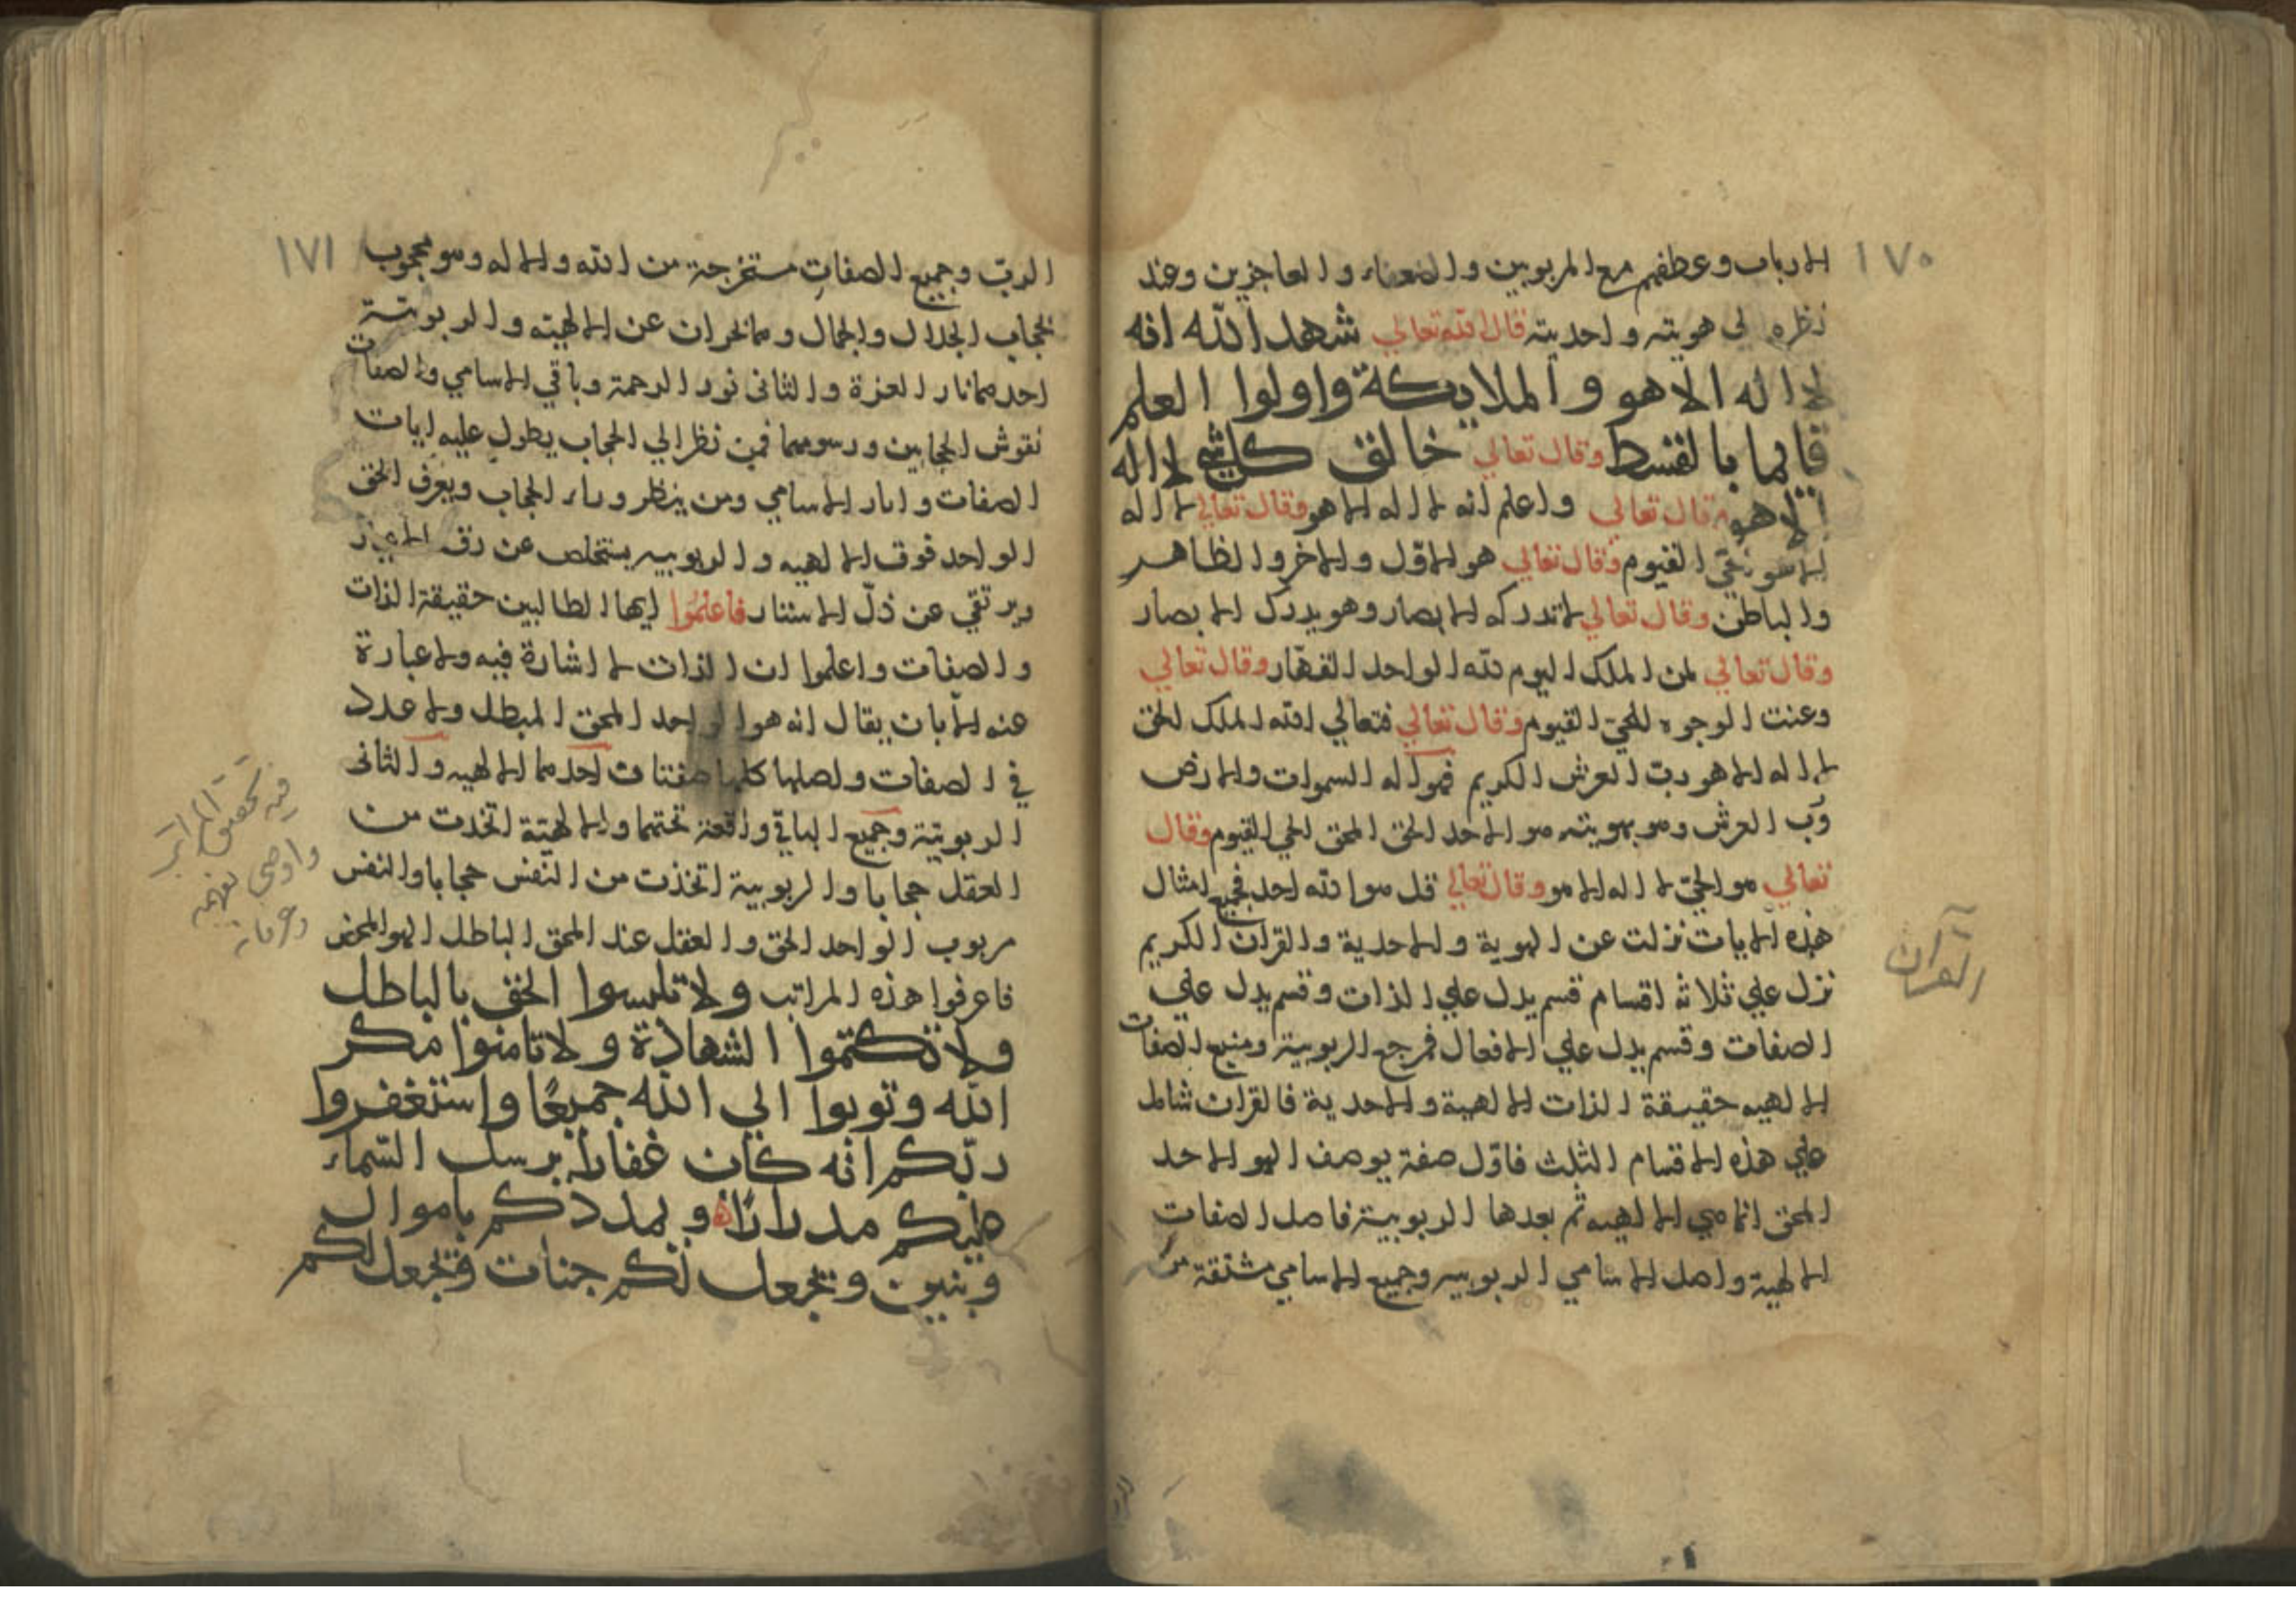 ١٧٠
الارباب وعطفهم مع المربوبين والضعفاء والعاجزين وعند
نظره الى هويته واحديته قال الله تعالي شهد الله انه
لا اله الا هو والملايكة واولوا العلم
قايما بالقسط وقال تعالي خالق كل شي لا اله
الا هو وقال تعالي واعلم انه لا اله الا هو وقال تعالي لا اله
الا هو الحي القيوم وقال تعالي هو الاول والاخر والظاهر
والباطن وقال تعالي لا تدركه الابصار وهو يدرك الابصار
وقال تعالي لمن الملك اليوم لله الواحد القهار وقال تعالي
وعنت الوجوه للحي القيوم وقال تعالي فتعالي الله الملك الحق
لا اله الا هو رب العرش الكريم فهو اله السموات والارض
ورب العرش وهو بهويته هو الاحد الحق المحق الحي القيوم وقال
تعالي هو الحي لا اله الا هو وقال تعالي قل هو الله احد فجميع امثال
هذه الايات نزلت عن الهوية والاحدية والقران الكريم
القرآن
نزل علي ثلاثه اقسام قسم يدل علي الذات وقسم يدل علي
الصفات وقسم يدل علي الافعال فمرجع الربوبية ومنبع الصفات
الالهيه حقيقة الذات الالهية والاحدية فالقران شامل
علي هذه الاقسام الثلث فاول صفة يوصف الهو الاحد
المحق انما هي الالهيه ثم بعدها الربوبية فاصل الصفات
الالهية واصل الاسامي الربوبيه وجميع الاسامي مشتقة من
١٧١
الربّ وجميع الصفات مستخرجة من الله والاله وهو محجوب
بحجاب الجلال والجمال وهما نخبران عن الالهية والربوبية
احدهما نار العزة والثانى نور الرحمة وباقي الاسامي والصفات
نقوش الحجابين ورسومهما فمن نظر الي الحجاب يطول عليه ايات
الصفات واثار الاسامي ومن ينظر وراء الحجاب ويعرف الحق
الواحد فوق الالهيه والربوبيه يستخلص عن رق
ويرتقي عن ذلّ الاستتار فاعلموا ايها الطالبين حقيقة الذات
والصفات واعلموا ان الذات لا اشارة فيه ولا عبارة
عنه الا بان يقال انه هو الواحد المحق المبطل ولا عدد
في الصفات واصلها كلها صفتان احدهما الالهيه والثانى
الربوبية وجميع الباقي واقعة تحتهما والالهية اتخذت من
العقل حجابا والربوبية اتخذت من النفس حجابا والنفس
مربوب الواحد الحق والعقل عند المحق الباطل الهو المحض
فيه تحقيق المراتب
واوصى بفهمه
وعرفانه
فاعرفوا هذه المراتب ولا تلبسوا الحق بالباطل
ولا تكتموا الشهادة ولا تامنوا مكر
الله وتوبوا الي الله جميعًا واستغفروا
ربّكم انه كان غفارا يرسل السّماء
عليكم مدرارًا ويمددكم باموال
وبنين ويجعل لكم جنات ويجعل لكم